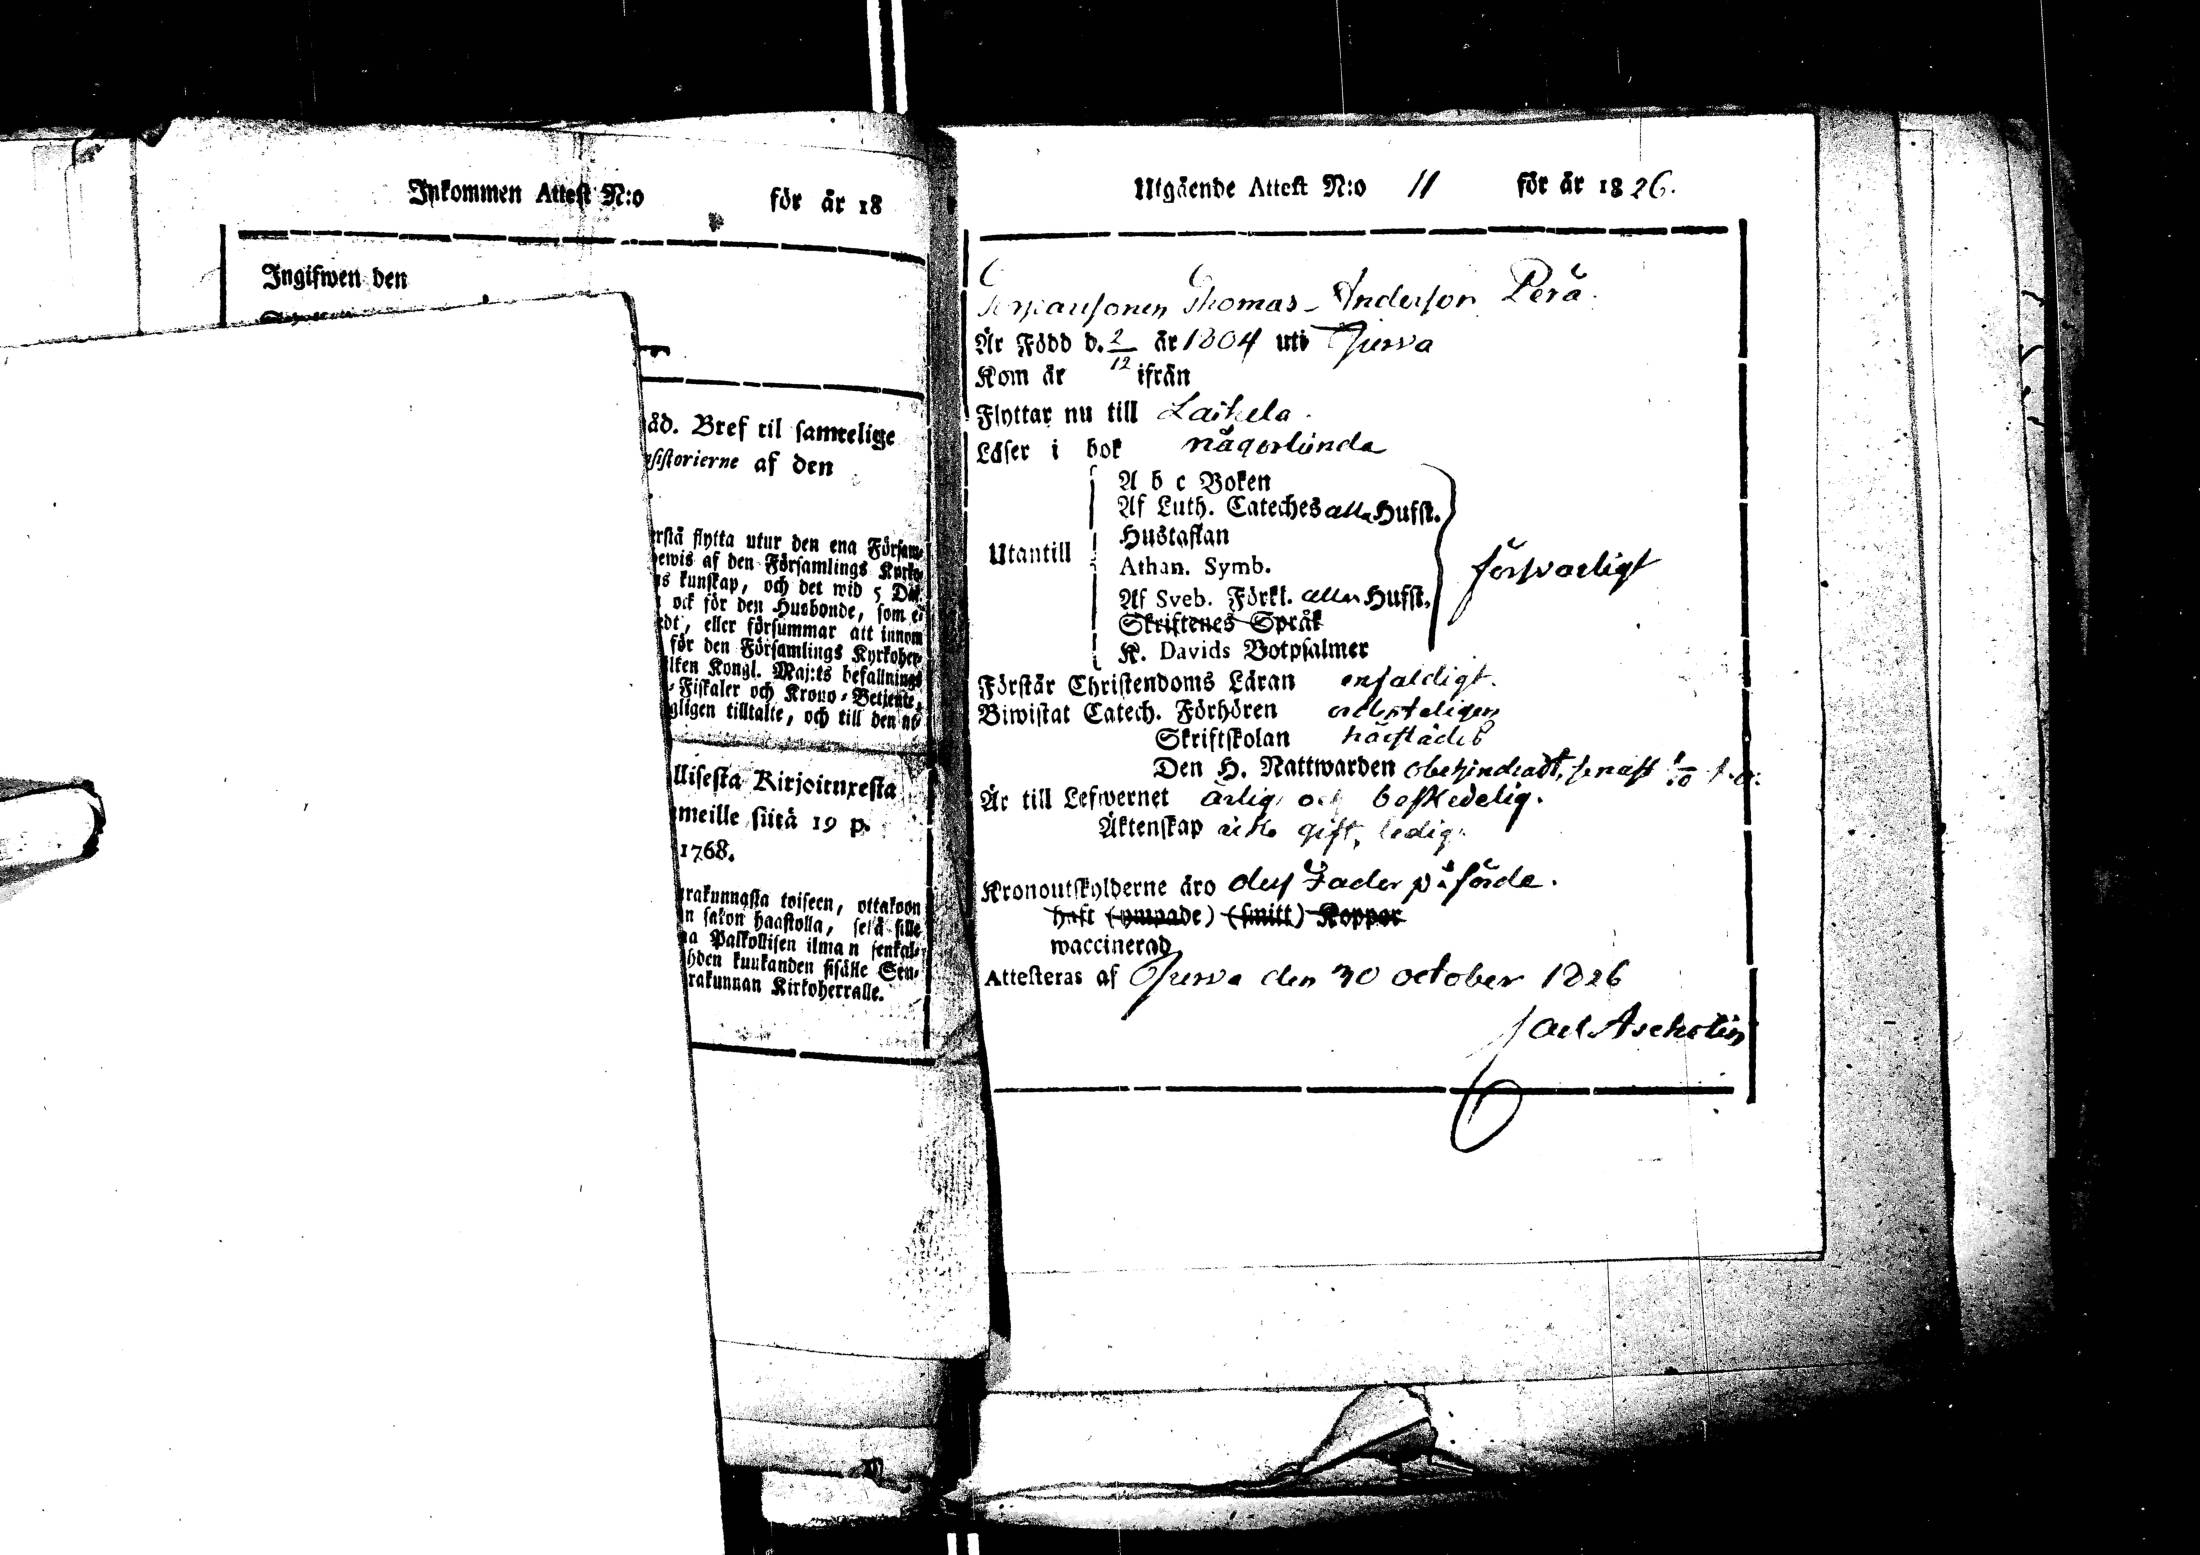 Inkommen Attest N:o för år 18
Ingifwen den
åd. Bref til samtelige
sistorierne af den
rstå flytta utur den ena Försam-
bewis af den Församlings Kyrko-
s kunskap, och det wid 5 Dal.
ock för den Husbonde, som ei
edt, eller försummar att innom
för den Församlings Kyrkoher-
lken Kongl. Maj:ts befallnings
- Fiskaler och Krono-Betjente,
gligen tilltalte, och till den ut-
llisesta Kirjoituxesta
meille siitä 19 p.
1768.
rakunnasta toiseen, ottakoon
n sakon haastolla, sekä sille
na Palkollisen ilman senkal-
hden kuukanden sisälle Seu-
rakunnan Kirkoherralle.
Utgående Attest N:o 11 för år 1826.
Thomas Anderson Perä.
Är Född d. 2/12 år 1804 uti Jurva
Kom år ifrån
Flyttar nu till Laihela.
Läser i bok någorlunda
A b c Boken
Af Luth. Cateches alla Hufst.
Hustaflan
Utantill
Athan. Symb.
försvarligt
Af Sveb. Förkl. alla Hufst.
Skriftenes Språk
K. Davids Botpsalmer
Förstår Christendoms Läran enfaldigt.
Biwistat Catech. Förhören ordenteligen
Skriftskolan härstädes
Den H. Nattwarden obehindradt, senast
Är till Lefwernet ärlig och beskedelig.
Äktenskap icke gift, ledig.
Kronoutskylderne äro dess Fader påförde.
haft (ympade) (smitt) Koppor
waccinerad
Attesteras af Jurva den 30 october 1826